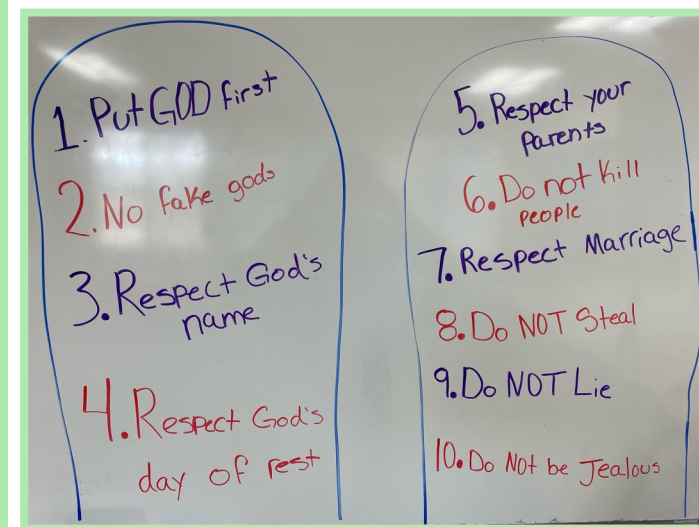 1. Put GOD first
2. No fake gods
3. Respect God's
name
4. Respect God's
day of rest
5. Respect your
Parents
6. Do not Kill
PEOPLE
7. Respect Marriage
8. Do NOT Steal
9. Do NOT Lie
10. Do Not be Jealous